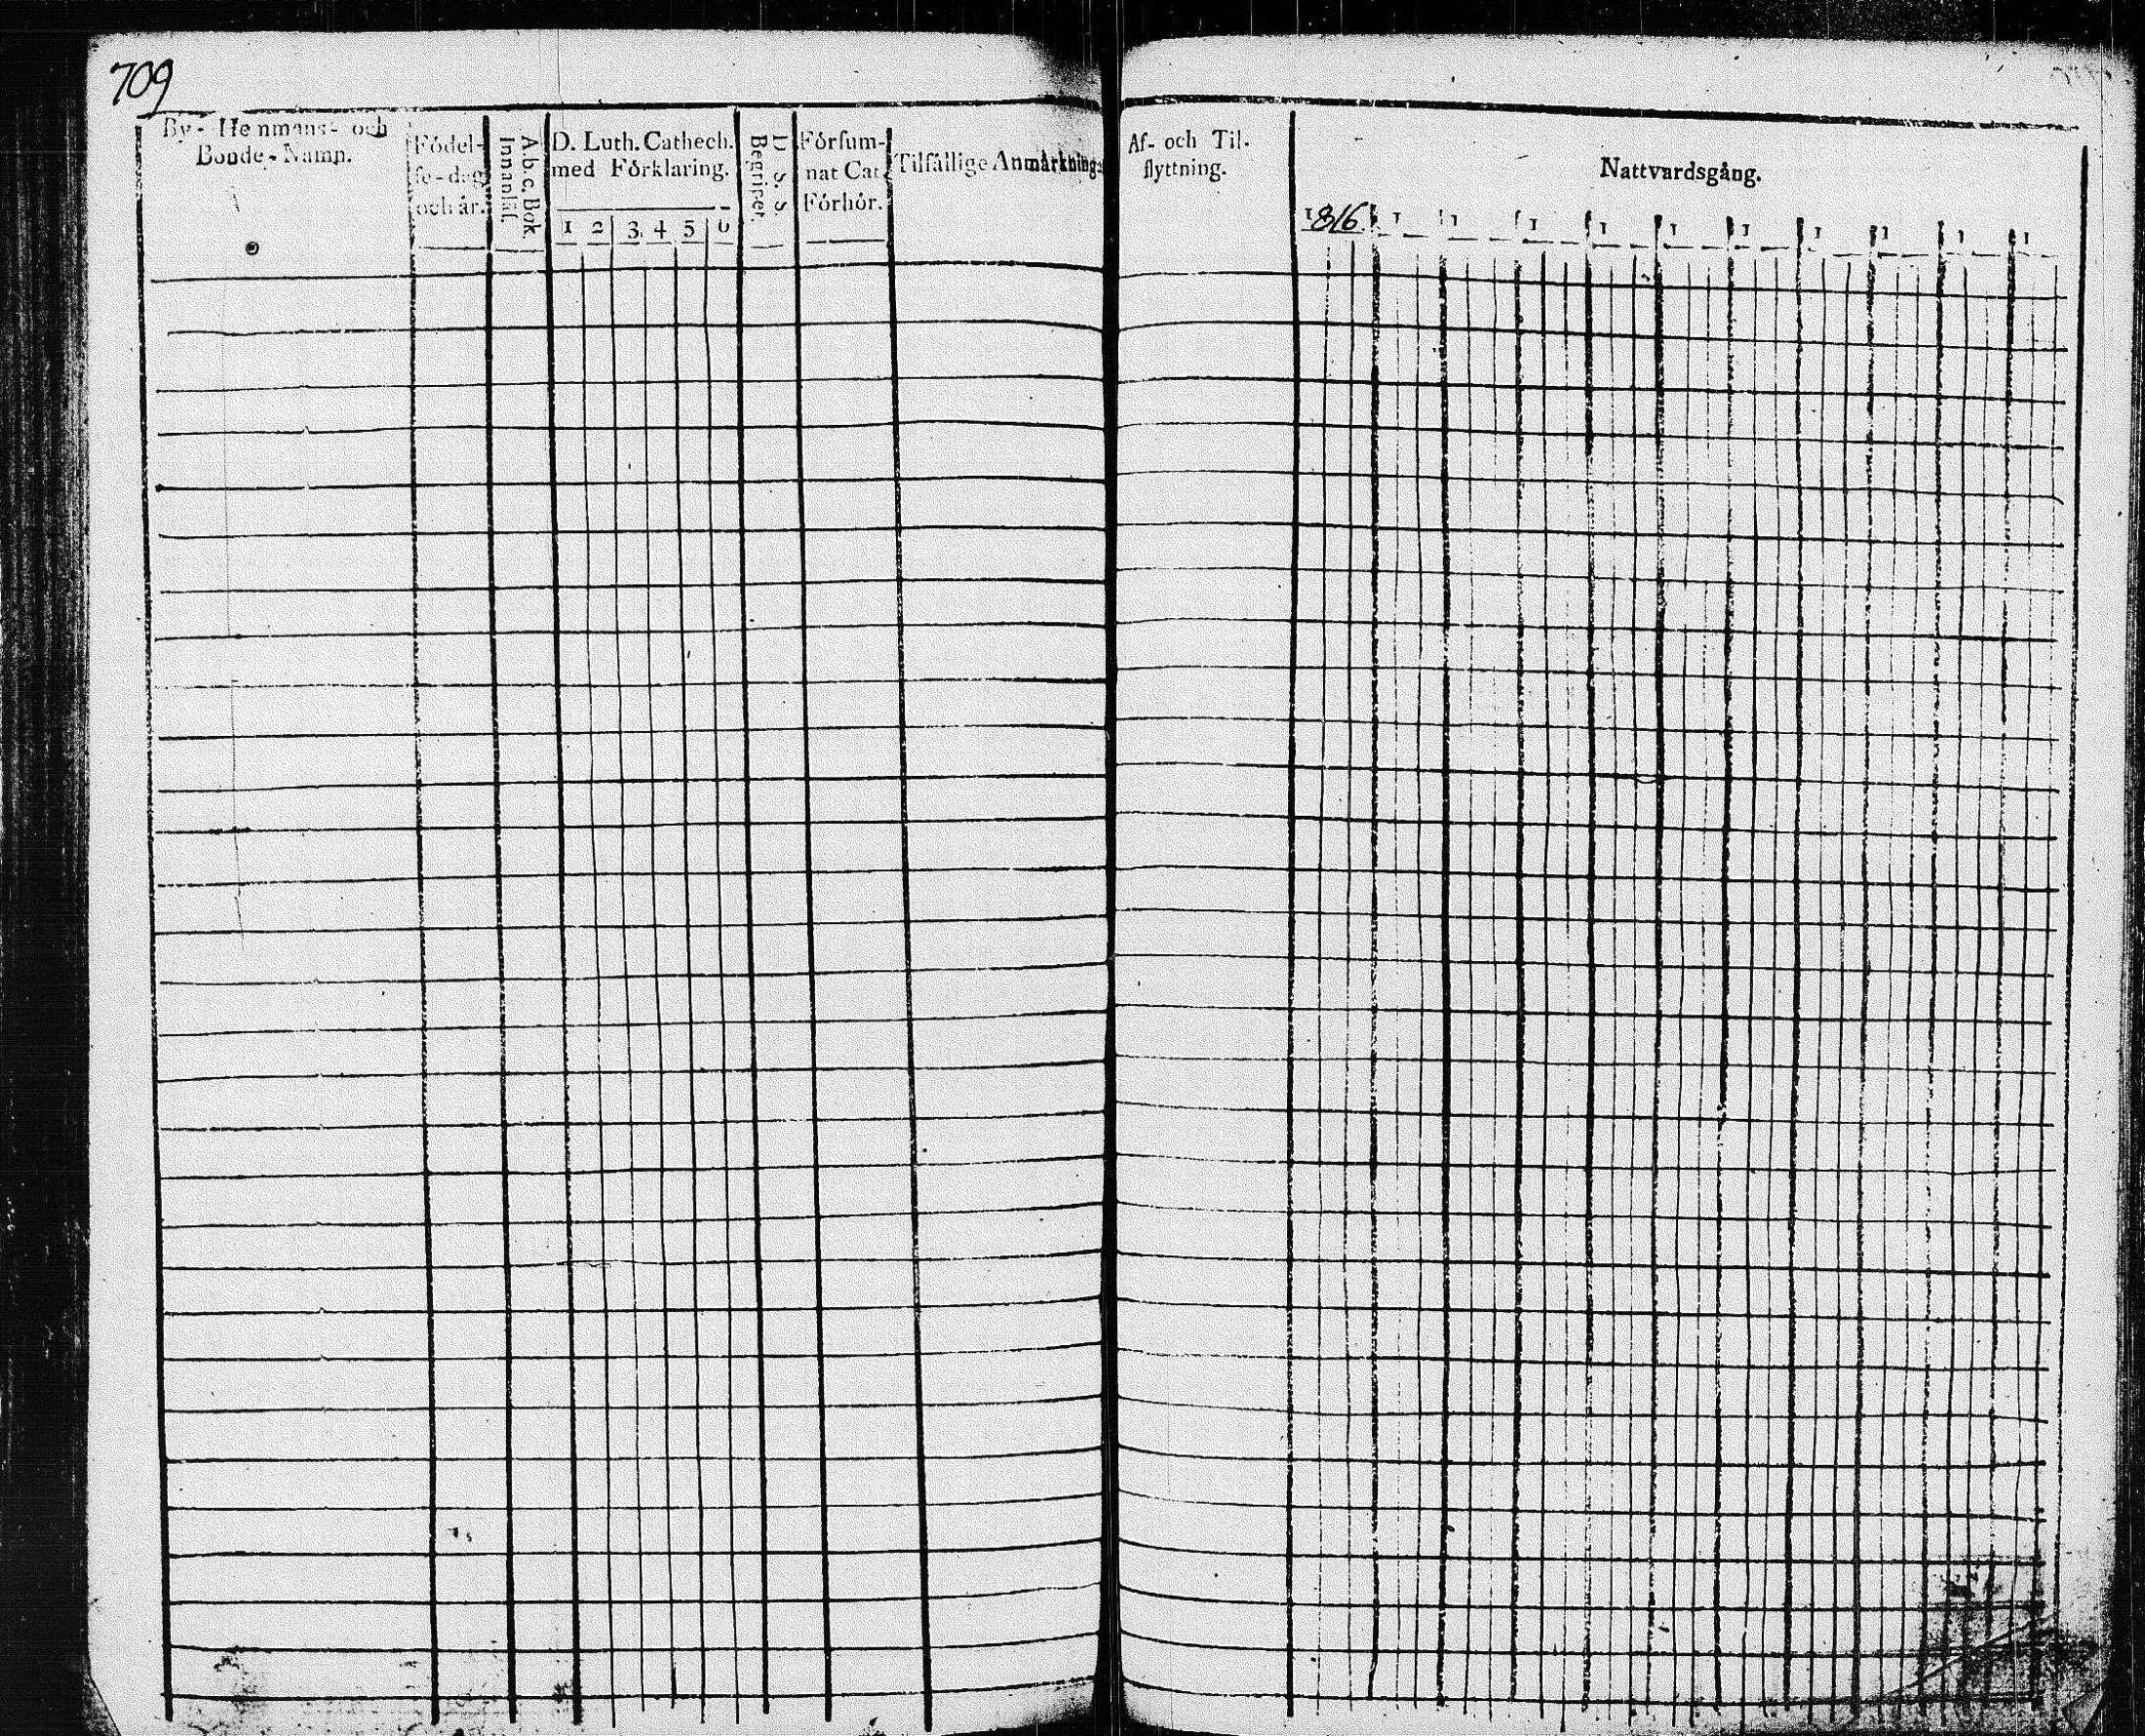 709
By- Hemmans- och
Bonde-Namn.
Födel-
se-dag
och år.
A.b.c. Bok.
Innanläs.
D. Luth. Cathech.
med Förklaring.
1 2 3 4 5 6
D. S. S.
Begriper.
Försum-
nat Cat.
Förhör.
Tilfällige Anmärkning
Af- och Til-
flyttning.
Nattvardsgång.
1816. 1 1 1 1 1 1 1 1 1 1